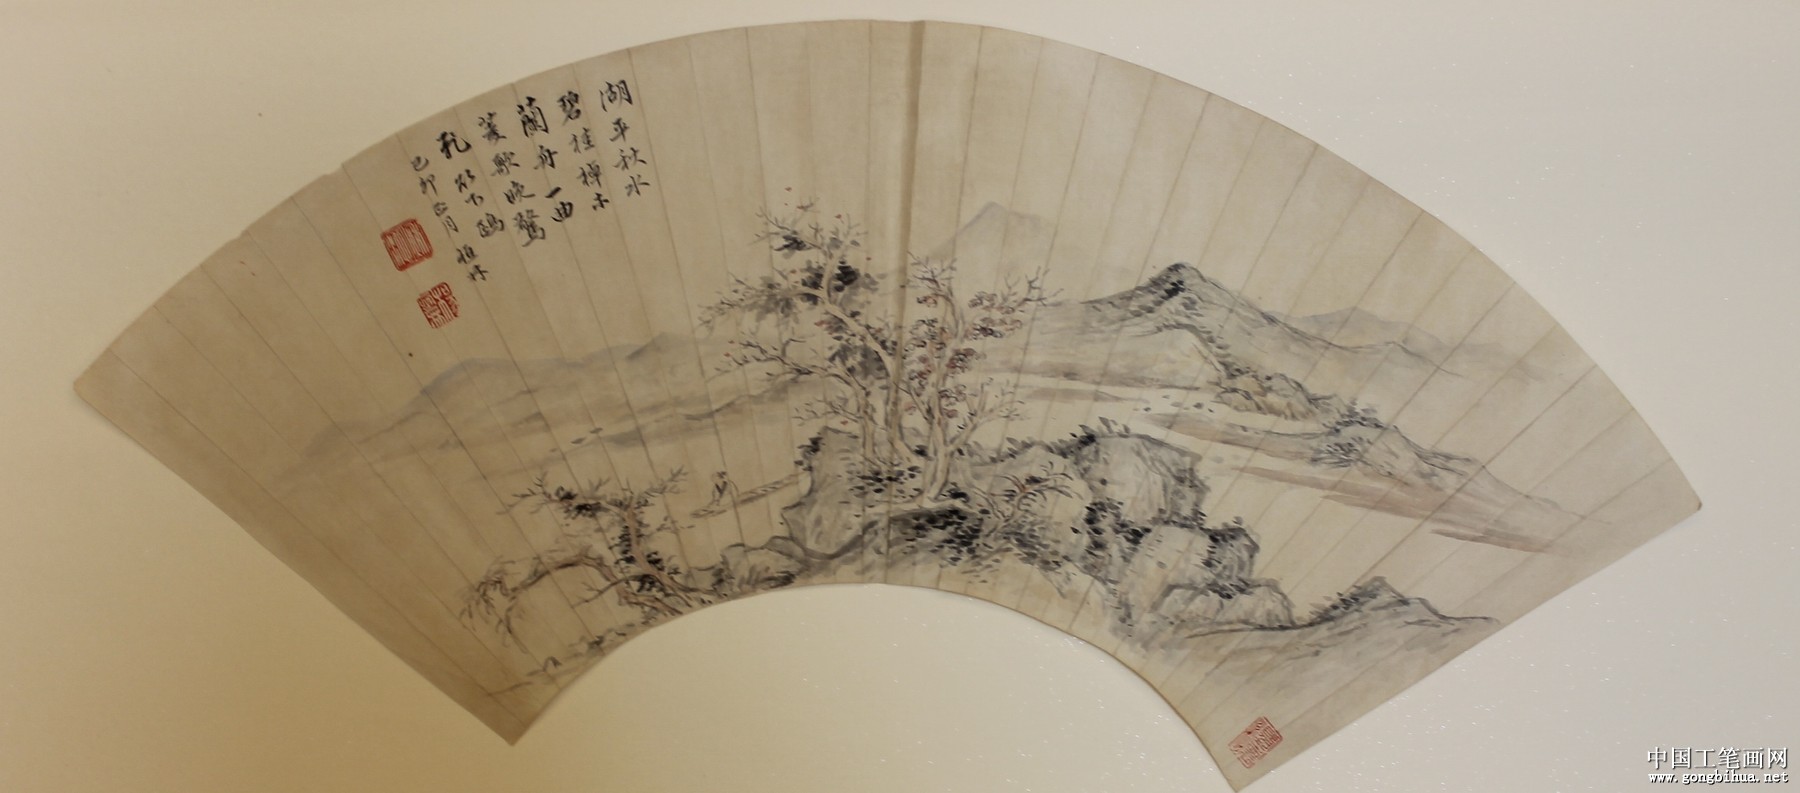 湖平秋水
碧桂棹木
蘭舟一曲
菱歌晚驚
起
下鷗
己卯正月
中国工笔画网
www.gongbihua.net